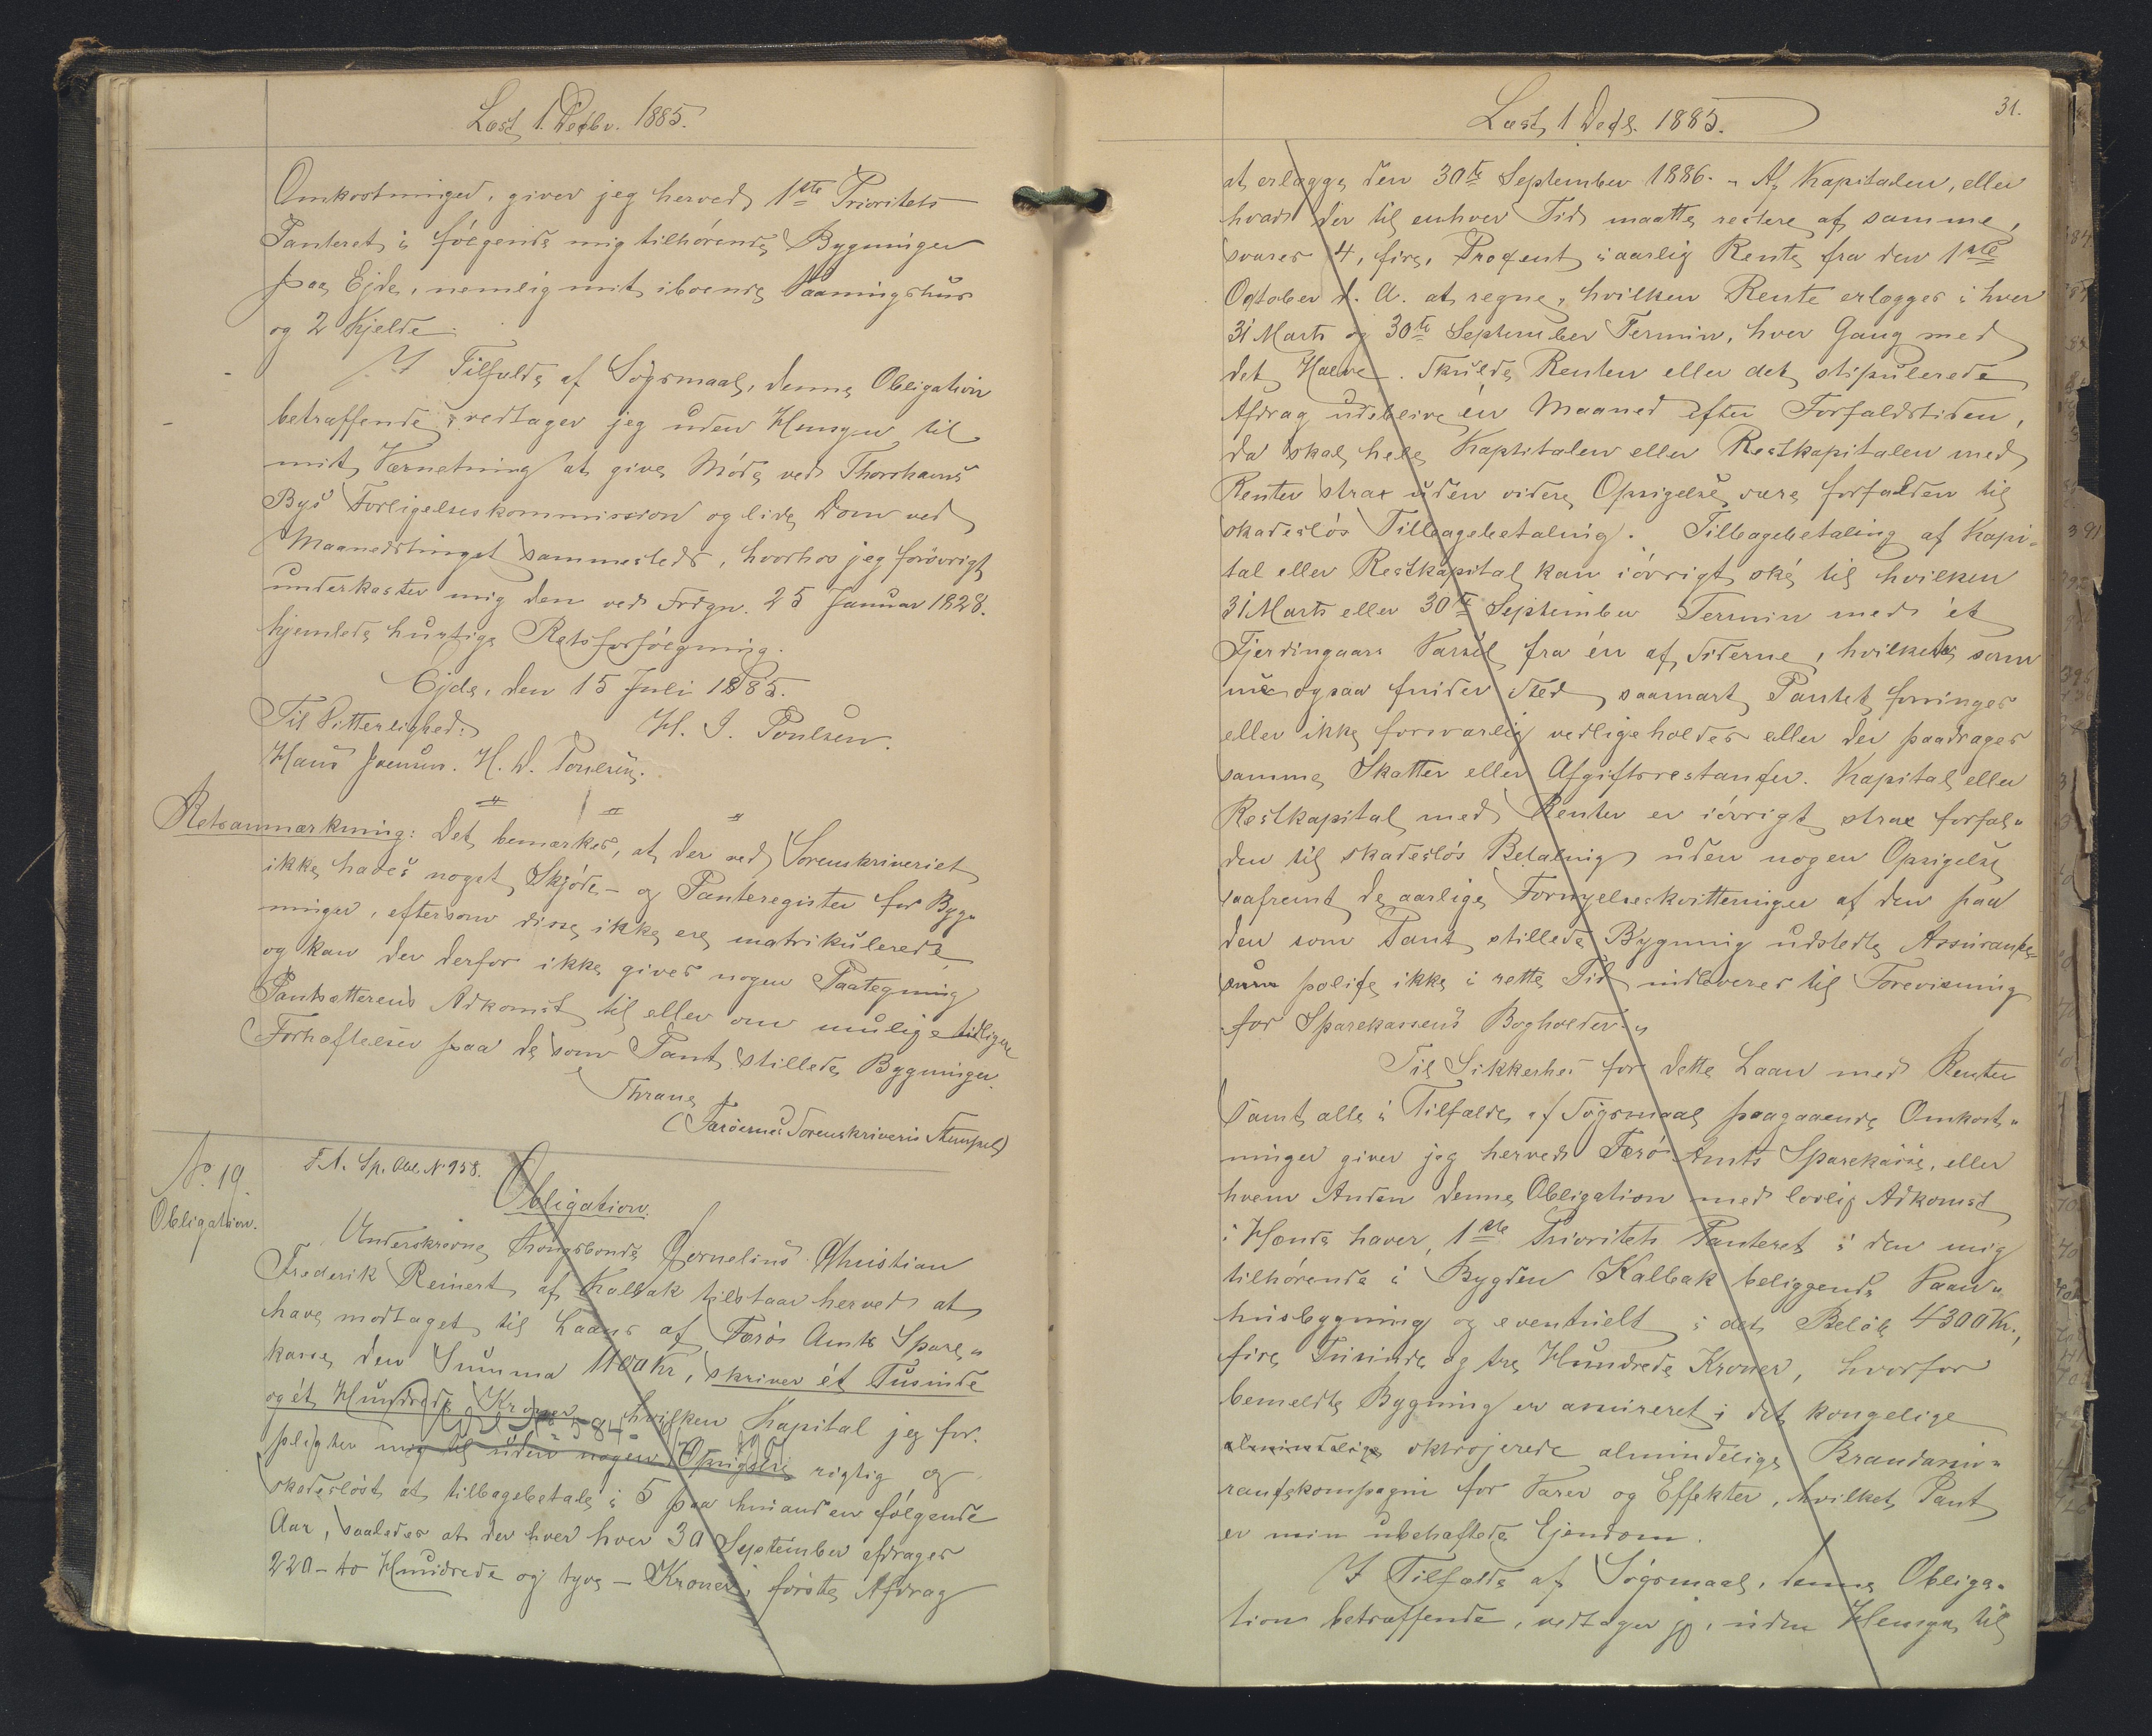 Læst 1 Decbr. 1885.
Omkostninger, giver jeg herved 1ste Prioritets
Panteret i følgende mig tilhørende Bygninger
paa Ejde, nemlig mit iboende Vaaningshus
og 2 Hjelde.
I Tilfælde af Søgsmaal, denne Obligation
betræffende, vedtager jeg uden Hensyn til
mit Værnething at give Møde ved Thorshavns
Bys Forligelseskommission og lide Dom ved
Maanedstinget sammesteds, hvorhos jeg forøvrigt
underkaster mig den ved Frdgn. 25 Januar 1828.
hjemlede hurtige Retsforfølgning.
Ejde, den 15 Juli 1885.
Til Vitterlighed: H. J. Poulsen.
Hans Joensen. H. D. Poulsen.
Retsanmærkning: Det bemærkes, at der ved Sorenskriveriet
ikke haves noget Skjøde- og Panteregister for Byg-
ninger, eftersom disse ikke ere matrikulerede
og kan der derfor ikke gives nogen Paategning
Pantsætterens Adkomst til eller om mulige tidligere
Forhæftelser paa de som Pant stillede Bygninger.
Thrane
(Færøernes Sorenskriveris Stempel)
No. 19. F. A. Sp. Obl. No 958.
Obligation. Obligation.
Underskrevne Kongsbonde Cornelius Christian
Frederik Reinert af Kalbak tilstaar herved at
have modtaget til Laans af Færø Amts Spare-
kasse den Summa 1100 Kr, skriver ét Tusinde
og ét Hundrede Kroner hvilken Kapital jeg for-
pligter mig til uden nogen Opsigelse rigtig og
skadesløst at tilbagebetale i 5 paa hinanden følgende
Aar, saaledes at der hver hver 30 September afdrages
220 - to Hundrede og tyve - Kroner, første Afdrag
31.
Læst, 1 Decb. 1885.
at erlægge den 30te September 1886. - Af Kapitalen, eller
hvad der til enhver Tid maatte restere af samme,
svares 4, fire, Procent i aarlig Rente fra den 1ste
October d. A. at regne, hvilken Rente erlægges i hver
31 Marts og 30te September Termin, hver Gang med
det Halve. Skulde Renten eller det stipulerede
Afdrag udeblive én Maaned efter Forfaldstiden,
da skal hele Kapitalen eller Restkapitalen med
Renter strax uden videre Opsigelse være forfalden til
skadesløs Tilbagebetaling. Tilbagebetaling af Kapi-
tal eller Restkapital kan iøvrigt ské til hvilken
31 Marts eller 30te September Termin med ét
Fjerdingaars Varsel fra én af Siderne, hvilket som
ogsaa finder Sted saasnart Pantet forringes
eller ikke forsvarlig vedligeholdes eller der paadrages
samme Skatter eller Afgiftsrestancer. Kapital eller
Restkapital med Renter er iøvrigt strax forfal-
den til skadesløs Betaling uden nogen Opsigelse
saafremt de aarlige Fornyelseskvitteringer af den paa
den som Pant stillede Bygning udstedte Assurance-
police ikke i rette Tid indleveres til Forevisning
for Sparekassens Bogholder. -
Til Sikkerhed for dette Laan med Renter
samt alle i Tilfælde af Søgsmaal paagaaende Omkost-
ninger giver jeg herved Færø Amts Sparekasse, eller
hvem Anden denne Obligation med lovlig Adkomst
i Hænde haver, 1ste Prioritets Panteret i den mig
tilhørende i Bygden Kalbak beliggende Vaan-
husbygning og eventuelt i det Beløb 4300 Kr.,
fire Tusinde og tre Hundrede Kroner, hvorfor
bemeldte Bygning er assureret i det kongelige
almindelige oktrojerede almindelige Brandassu-
rancekompagni for Varer og Effekter, hvilket Pant
er min ubehæftede Ejendom.
I Tilfælde af Søgsmaal, denne Obliga-
tion betræffende, vedtager jeg, uden Hensyn til